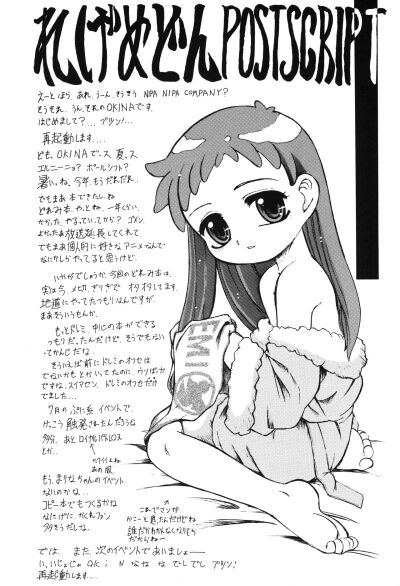 れげめどん POSTSCRIPT
えーと ほら、あれ、うーん、そうそう NIPA NIPA COMPANY?
うん、それのOKINAです。
はじめまして?...プツン!
再起動します....
ども、OKINAで、ス 夏、ス
エルニーニョ? ポールシフト?
暑い、ね、今年、もうだれだれ...
でもまあ本できたしね
どれみ本、や、とね、一年くらい
かかった、やる、ていってから? ゴメン、
よかったあ放送延長してくれて、
でもまあ個人的に好きなアニメなんで
なにかしらやってると思うけど
いかがでしょうか、今回のどれみ本は、
実はうち、メ切、ぎりぎりで オタオタしてます、
地道にやってたつもりなんですが、
まあそういうもんか、
もっとドレミ、中心の本ができる
つもりだ、たんだけど、そうでもない
ってかんじだな、
そういえば前にドレミのオフセ
でないかもとかいてたのに、ウソばっか
ですね、スイマセン、ドレミのオフセだけ
でました...
7月の ぷに系 イベントで、
けっこう触発されたんだろうな
多分、あと ロイヤルパトレーヌ
とか、
カワイイよね
あの服、
もう、まりなちゃんのイベント
ないのかな...
コピー本でもつくるかな
なにげに かくれファン
多そうだしな、
これでマンガ
かこーと思ったんだけどね
誰だかわかんなくなりそう
だからね...
EMII
では、また、次のイベントであいましょー
い、いじょじゃ OKiNな なな でしでし プツン!
再起動します....